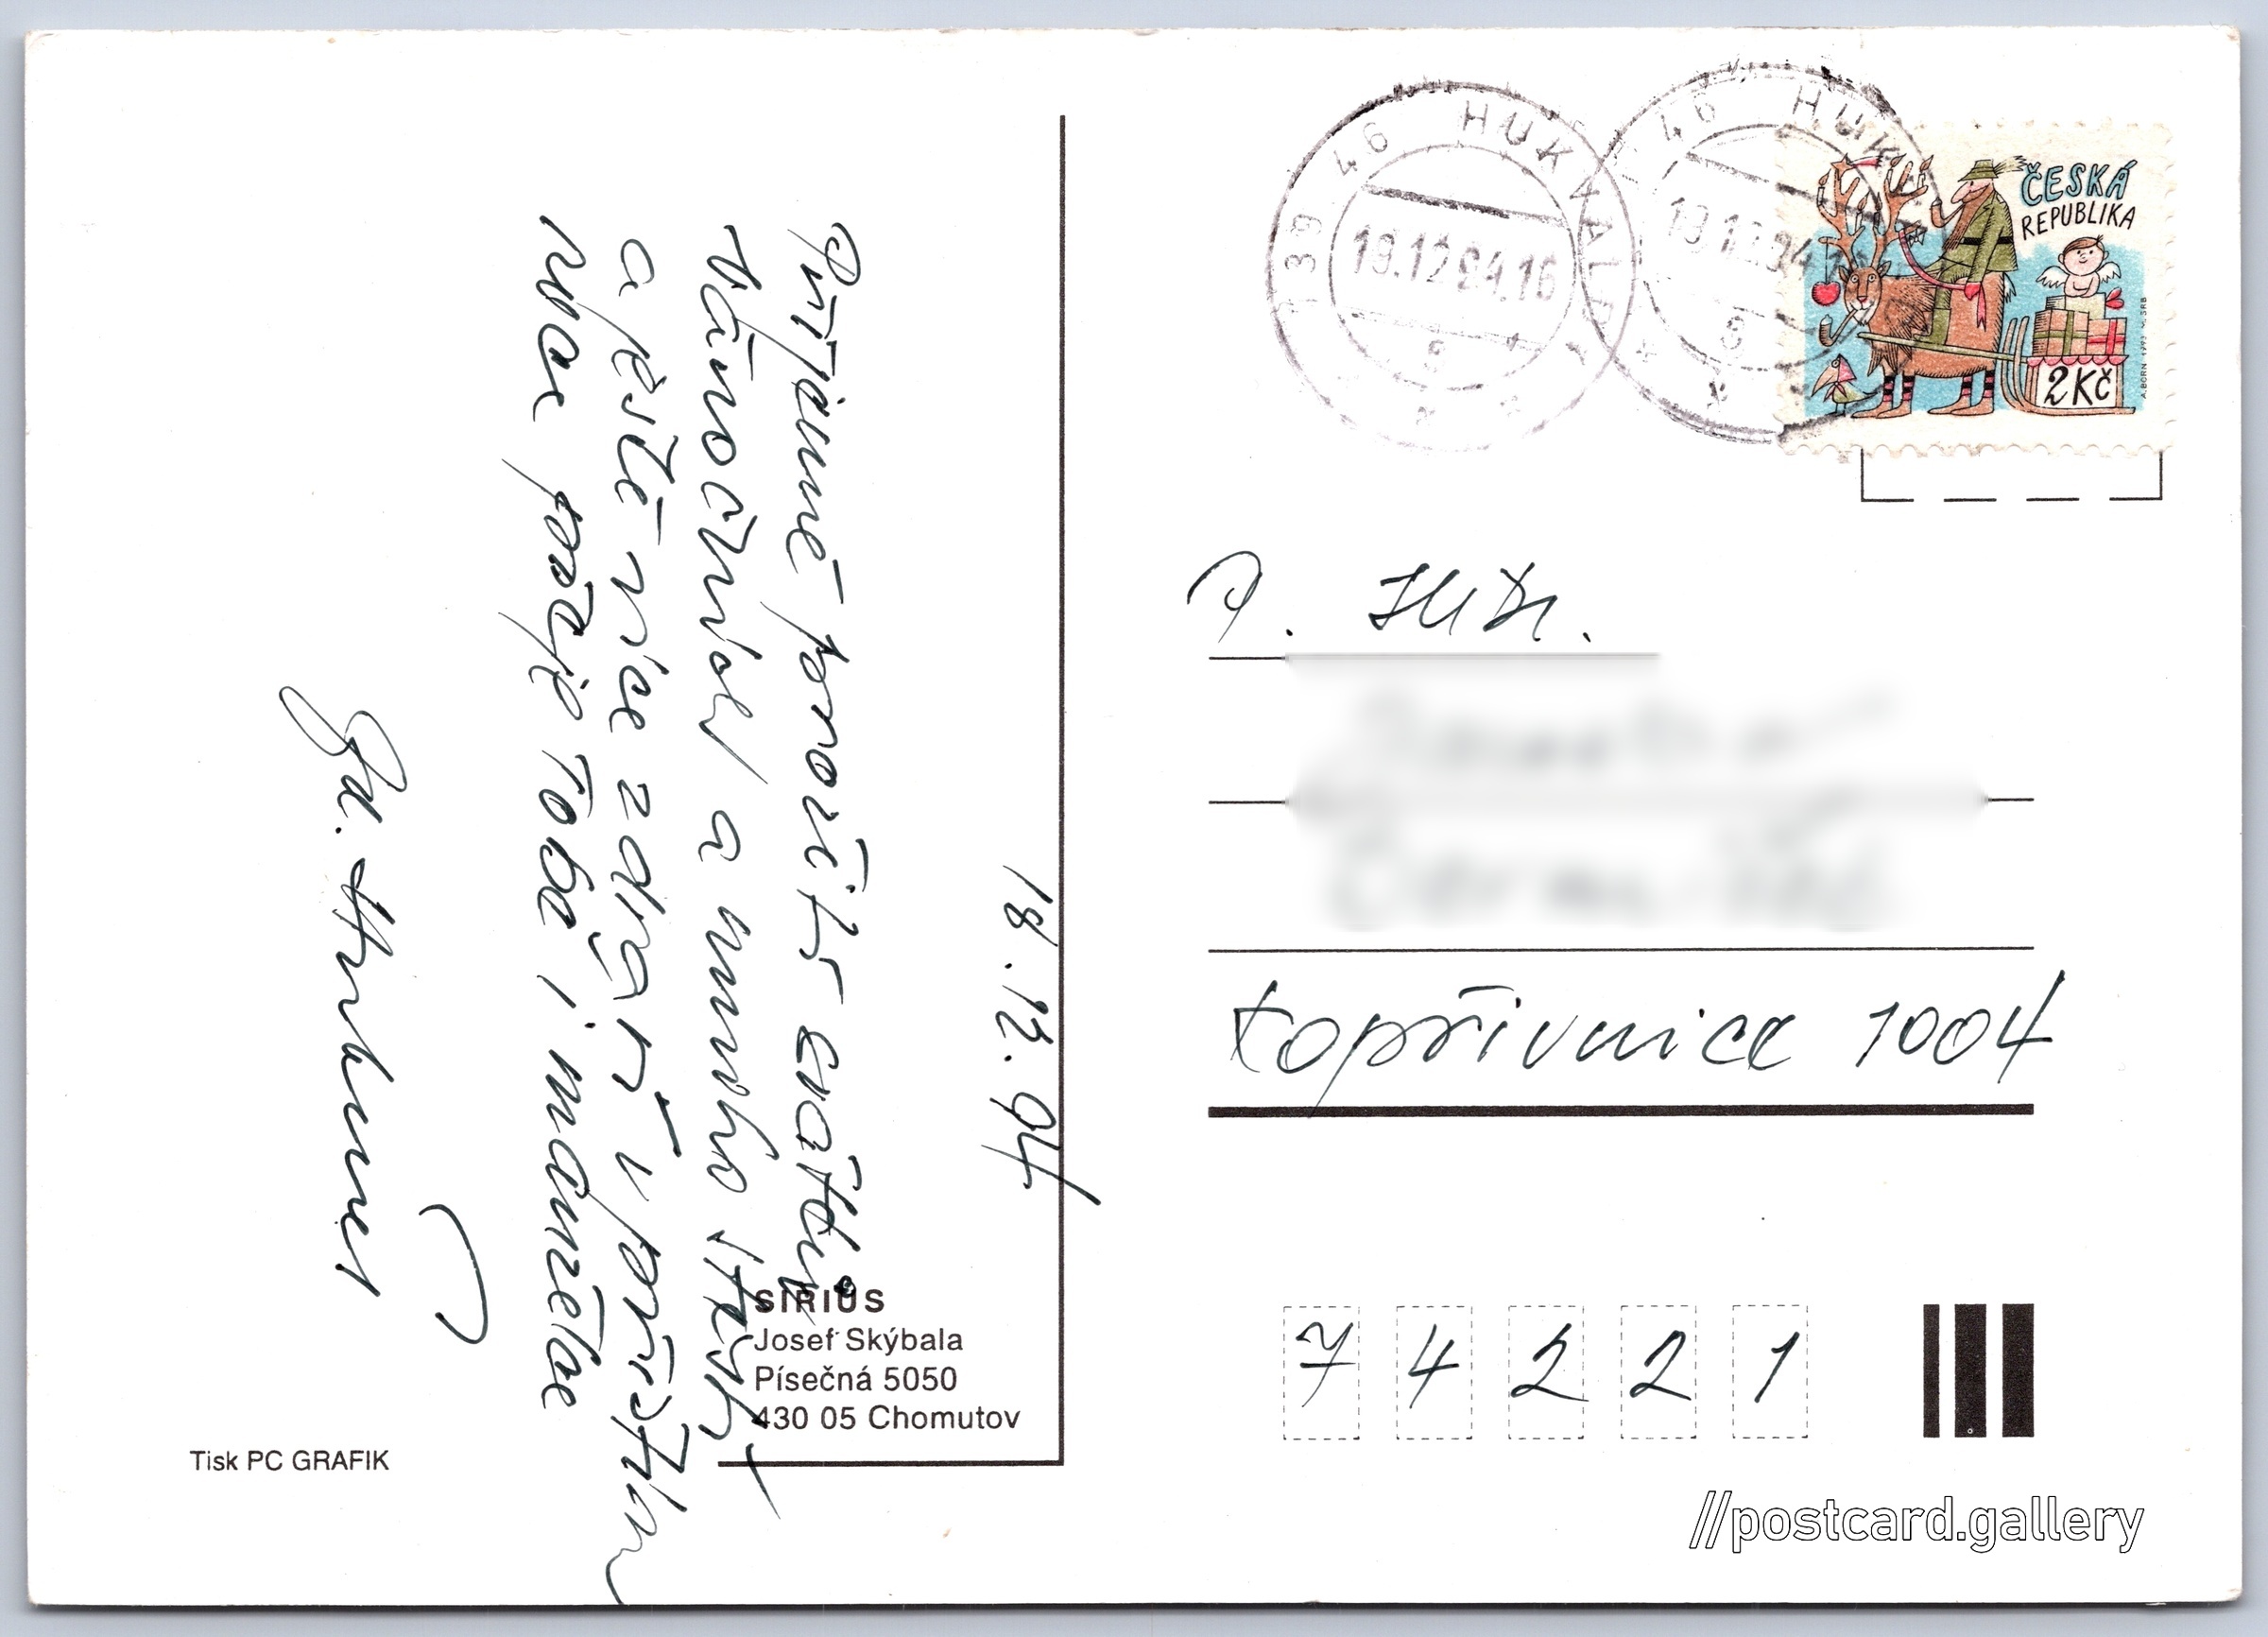 18.12.94
Příjemné prožití svátků
vánočních a mnoho štěstí
a ještě více zdraví v příštím
roce přeje Tobě i manželce
Tisk PC GRAFIK
SIRIUS
Josef Skýbala
Písečná 5050
430 05 Chomutov
739 46 HUKVALDY
19.12.94.16
739 46 HUK
19.12.94
ČESKÁ
REPUBLIKA
2Kč
A.BORN 1993 M.SRB
P.
Kopřivnice 1004
74221
//postcard.gallery